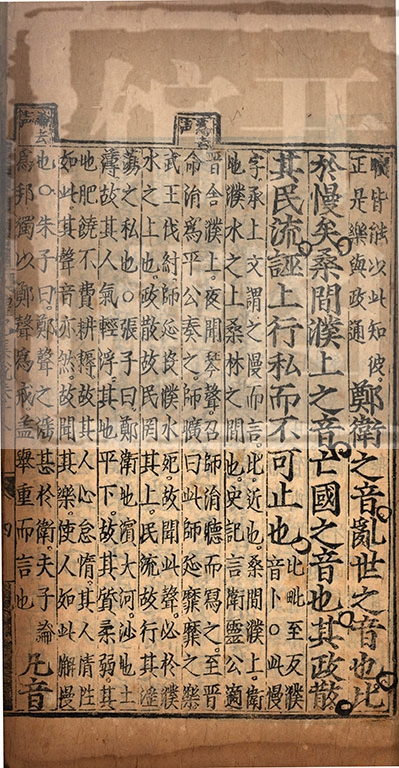 皆能以此知彼
正是樂與政通
鄭衛之音亂世之音也比
於慢矣桑間濮上之音亡國之音也其政散
其民流誣上行私而不可止也
比毗至反濮
音卜○此慢
字承上文謂之慢而言比近也桑間濮上衛
地濮水之上桑林之間也史記言衛靈公適
晉舍濮上夜聞琴聲召師涓聽而寫之至晉
爲去
聲
命涓爲平公奏之師曠曰此師延靡靡之樂
武王伐紂師延投濮水死故聞此聲必於濮
水之上也政散故民罔其上民流故行其淫
蕩之私也○張子曰鄭衛地濱大河沙地土
薄故其人氣輕浮其地平下故其質柔弱其
地肥饒不費耕耨故其人心怠惰其人情性
如此其聲音亦然故聞其樂使人如此懈慢
論去
聲
也○朱子曰鄭聲之淫甚於衛夫子論
爲邦獨以鄭聲爲戒蓋舉重而言也
凡音
四